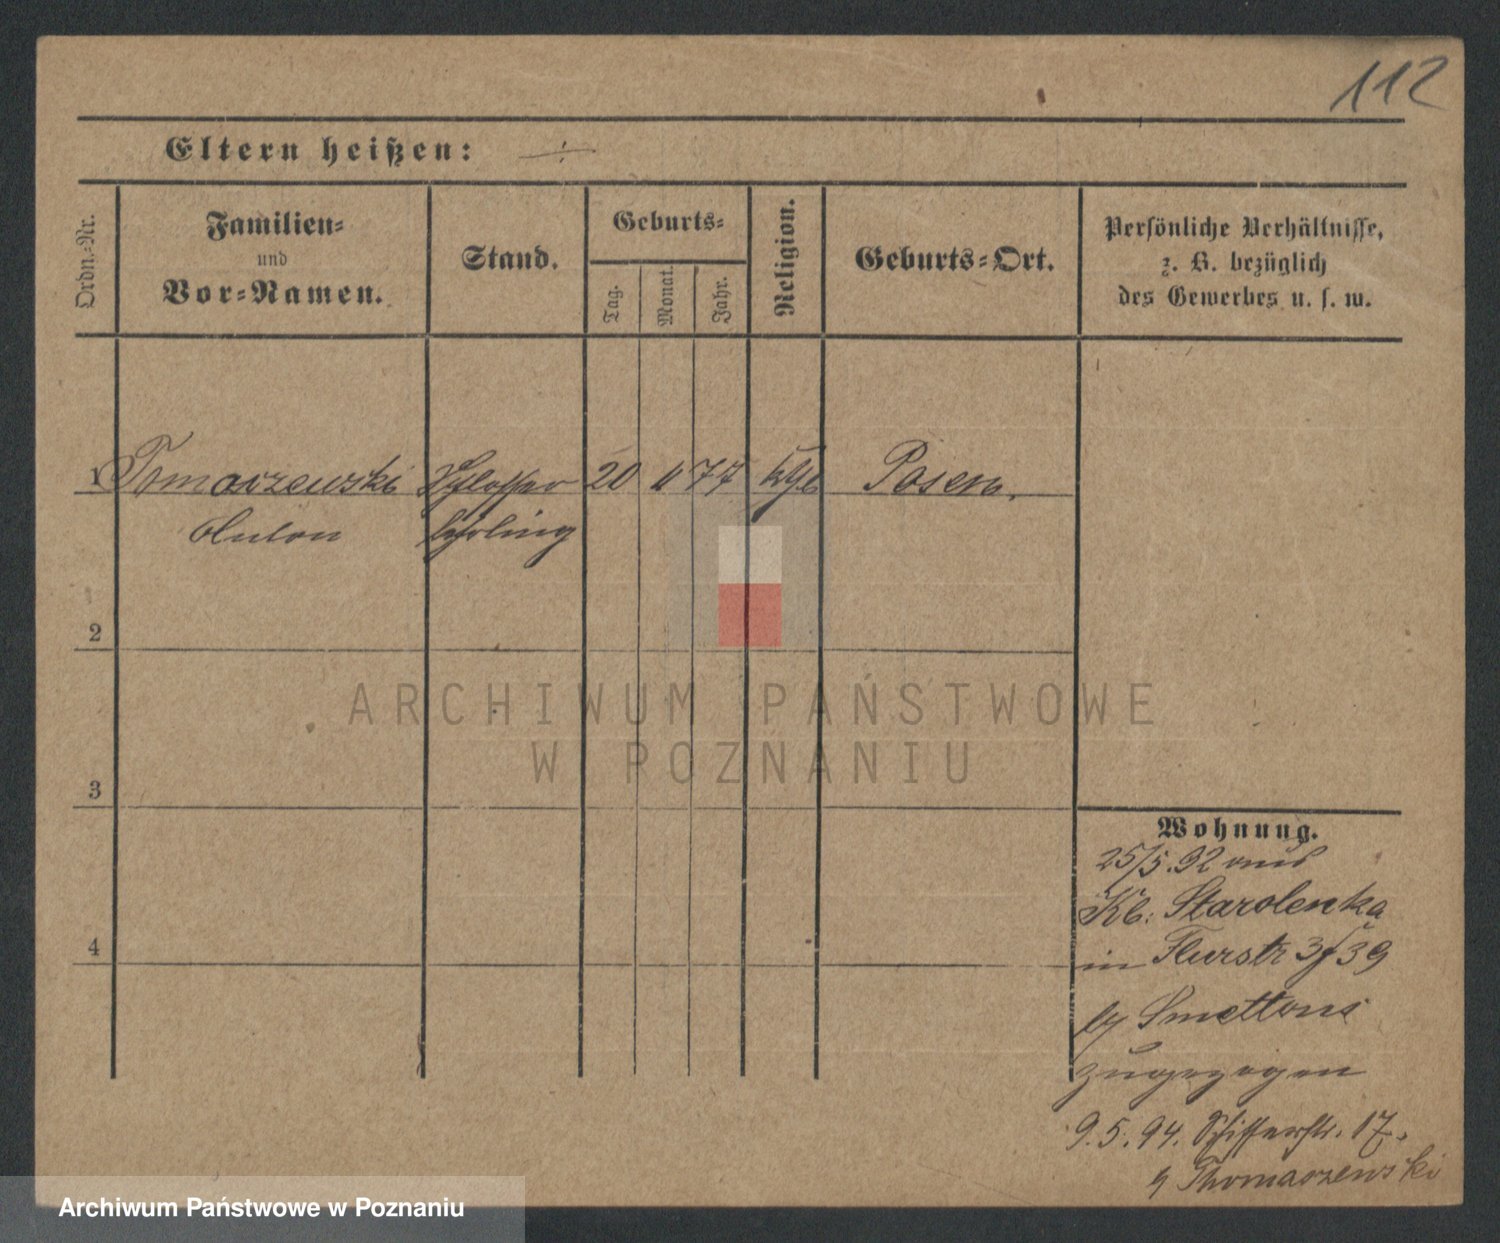 112
Eltern heißen: ÷
Ordn.-Nr.
Familien-
und
Vor-Namen.
Stand.
Geburts-
Tag.
Monat.
Jahr.
Religion.
Geburts-Ort.
Persönliche Verhältnisse,
z. B. bezüglich
des Gewerbes u. s. w.
1 Tomaszewski Schlosser 20 77 Posen.
Anton lehrling
2
ARCHIWUM PAŃSTWOWE
W POZNANIU
3
Wohnung.
25/5.92 aus
Kl: Starolenka
in Flurstr 39
4
by Smettons
zugezogen
9.5.94. Schifferstr. 17.
Thomaszewski
Archiwum Państwowe w Poznaniu